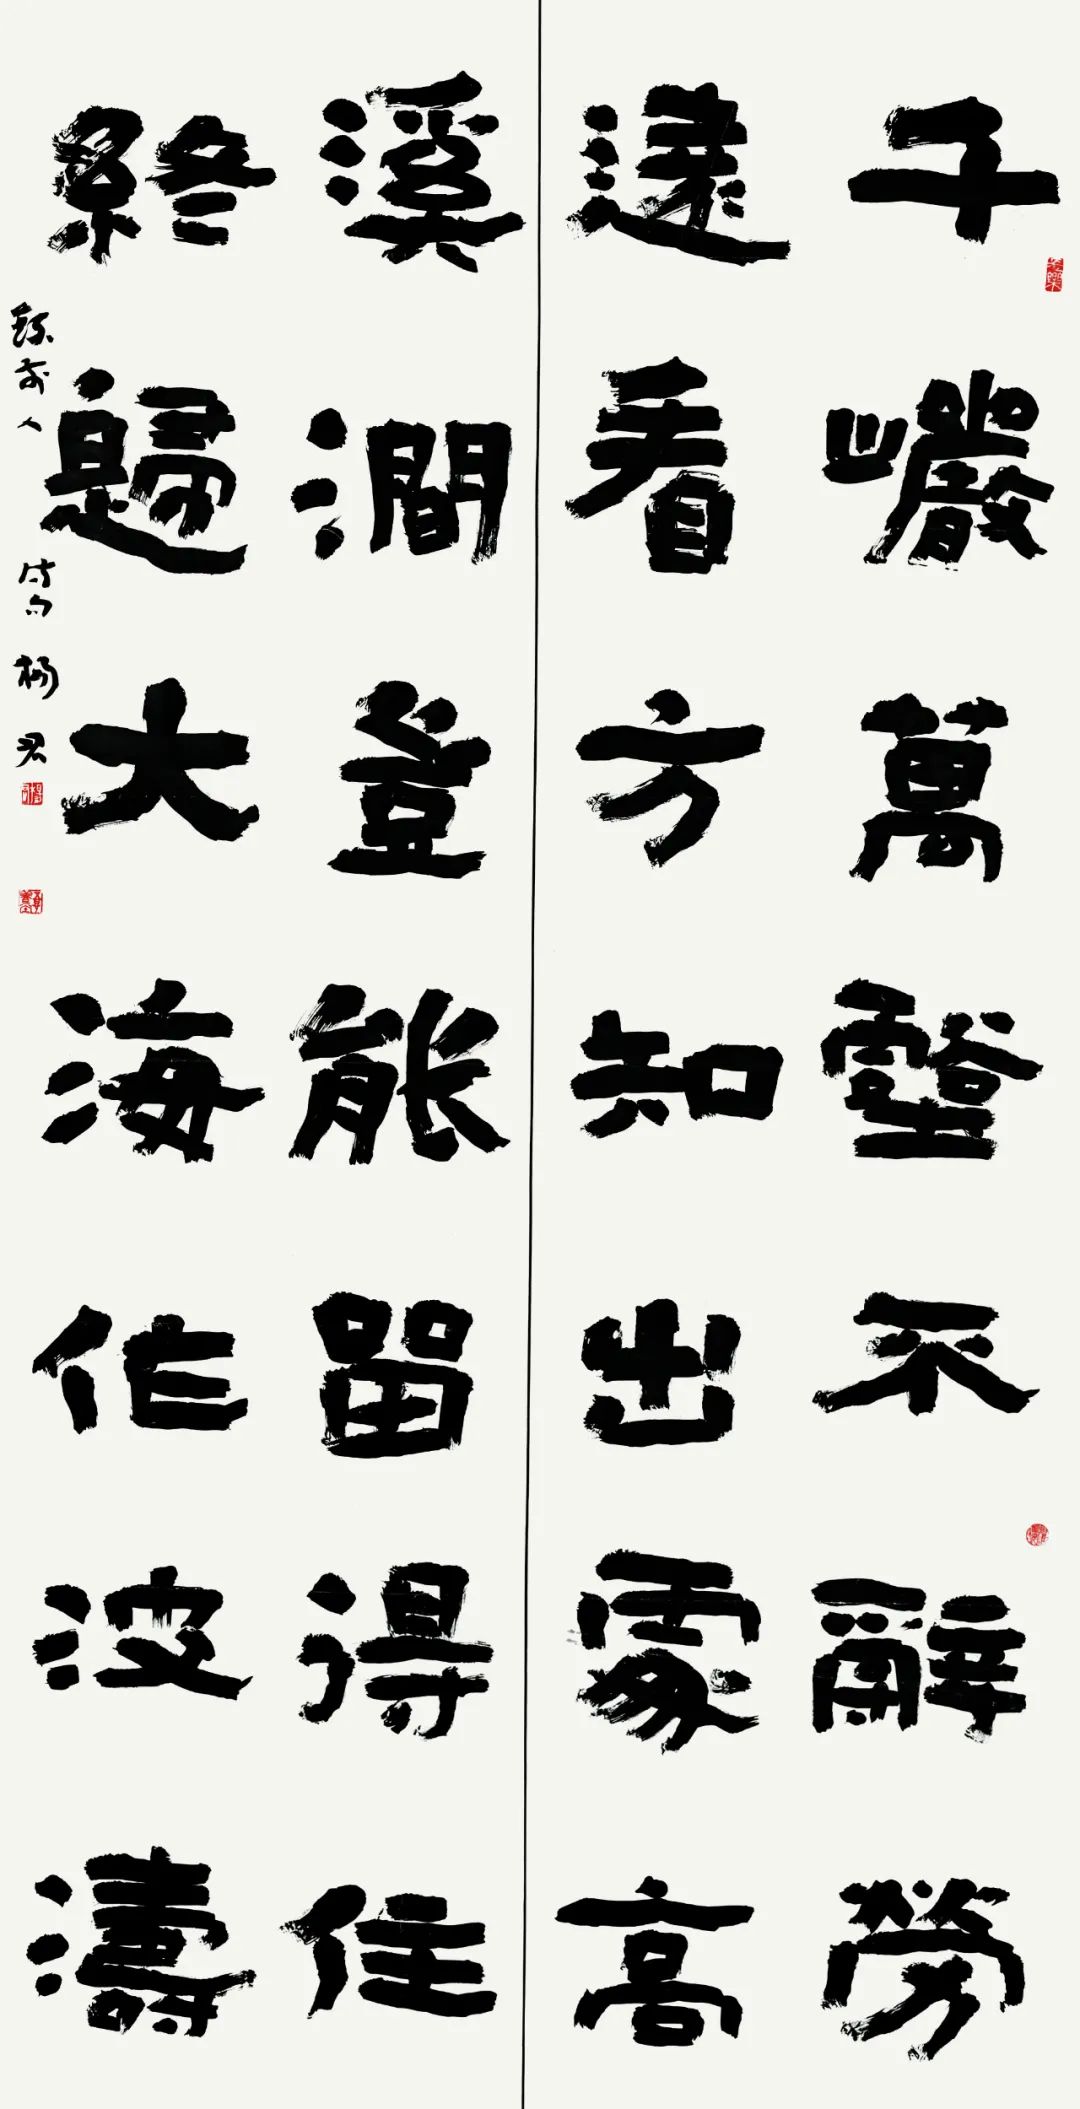 千巖萬壑不辭勞
遠看方知出處高
溪澗豈能留得住
終歸大海作波濤
錄前人詩句 楊君